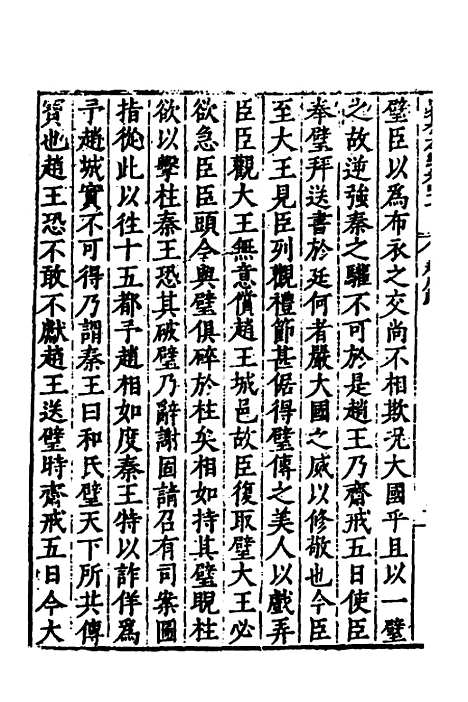 璧臣以為布衣之交尚不相欺况大國乎且以一璧
之故逆強秦之驩不可於是趙王乃齋戒五日使臣
奉璧拜送書於廷何者嚴大國之威以修敬也今臣
至大王見臣列觀禮節甚倨得璧傳之美人以戲弄
臣臣觀大王無意償趙王城邑故臣復取璧大王必
欲急臣臣頭今與璧俱碎於柱矣相如持其璧睨柱
欲以擊柱秦王恐其破璧乃辭謝固請召有司案圖
指從此以往十五都予趙相如度秦王特以詐佯為
予趙城實不可得乃謂秦王曰和氏璧天下所共傳
寶也趙王恐不敢不獻趙王送璧時齋戒五日今大